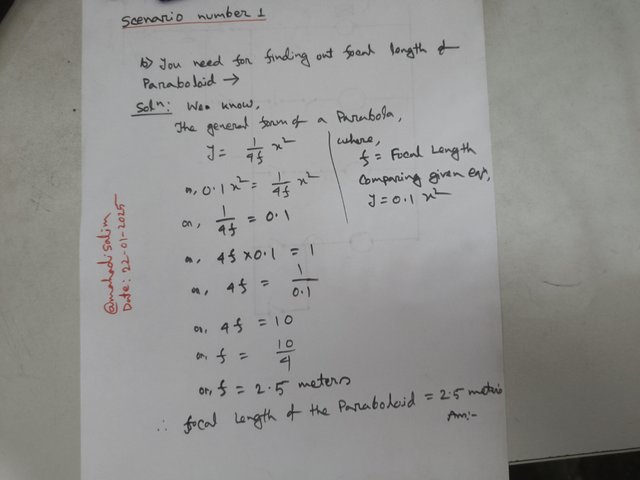 Scenario number 1
b) You need for finding out focal length of
Paraboloid →
Solⁿ: Wea know,
The general form of a Parabola,
y = 1/4f x²
or, 0.1 x² = 1/4f x²
or, 1/4f = 0.1
or, 4f × 0.1 = 1
or, 4f = 1/0.1
or, 4f = 10
or, f = 10/4
or, f = 2.5 meters
∴ focal Length of the Paraboloid = 2.5 meters
Ans:-
where,
f = Focal Length
Comparing given eqⁿ,
y = 0.1 x²
@mahadisalim
Date: 22-01-2025